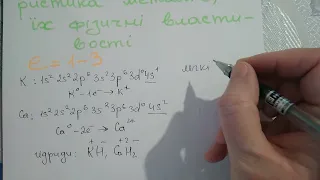 ристика металів,
їх фізичні власти-
вості
E = 1-3
K : 1s² 2s² 2p⁶ 3s² 3p⁶ 3d⁰ 4s¹
K⁰ - 1e⁻ → K⁺
Ca: 1s² 2s² 2p⁶ 3s² 3p⁶ 3d⁰ 4s²
Ca⁰ - 2e⁻ → Ca²⁺
гідриди: K⁺H⁻, Ca²⁺H₂⁻